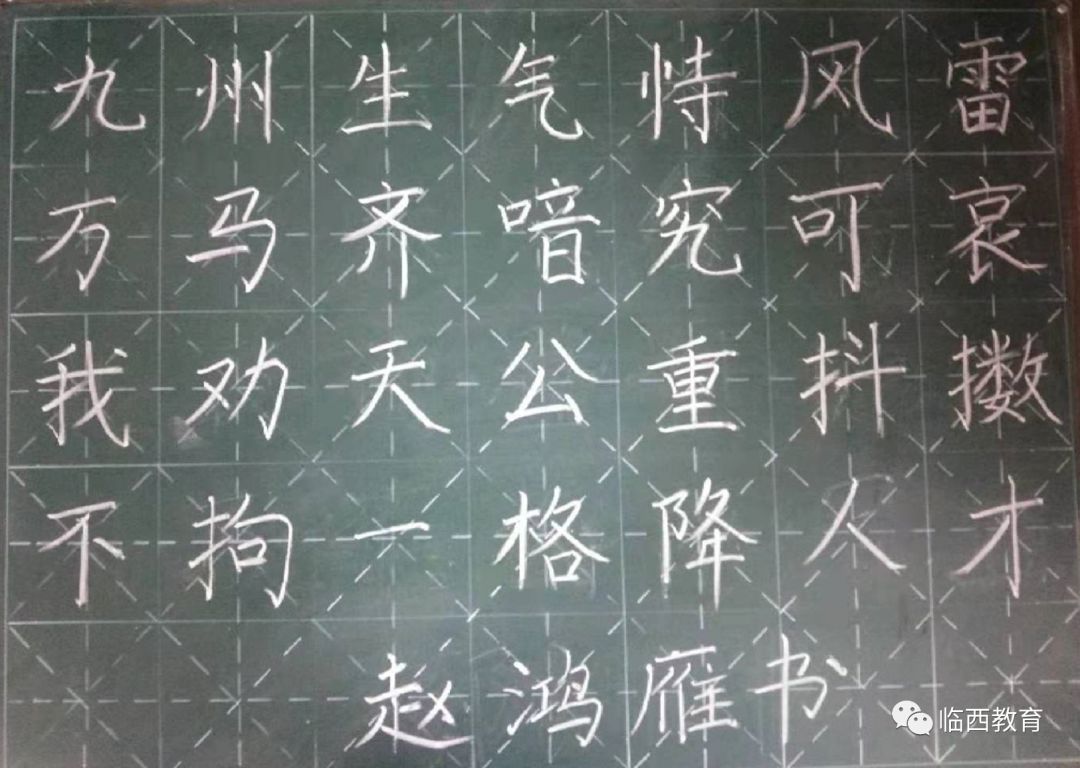 九州生气恃风雷
万马齐喑究可哀
我劝天公重抖擞
不拘一格降人才
赵鸿雁书
临西教育